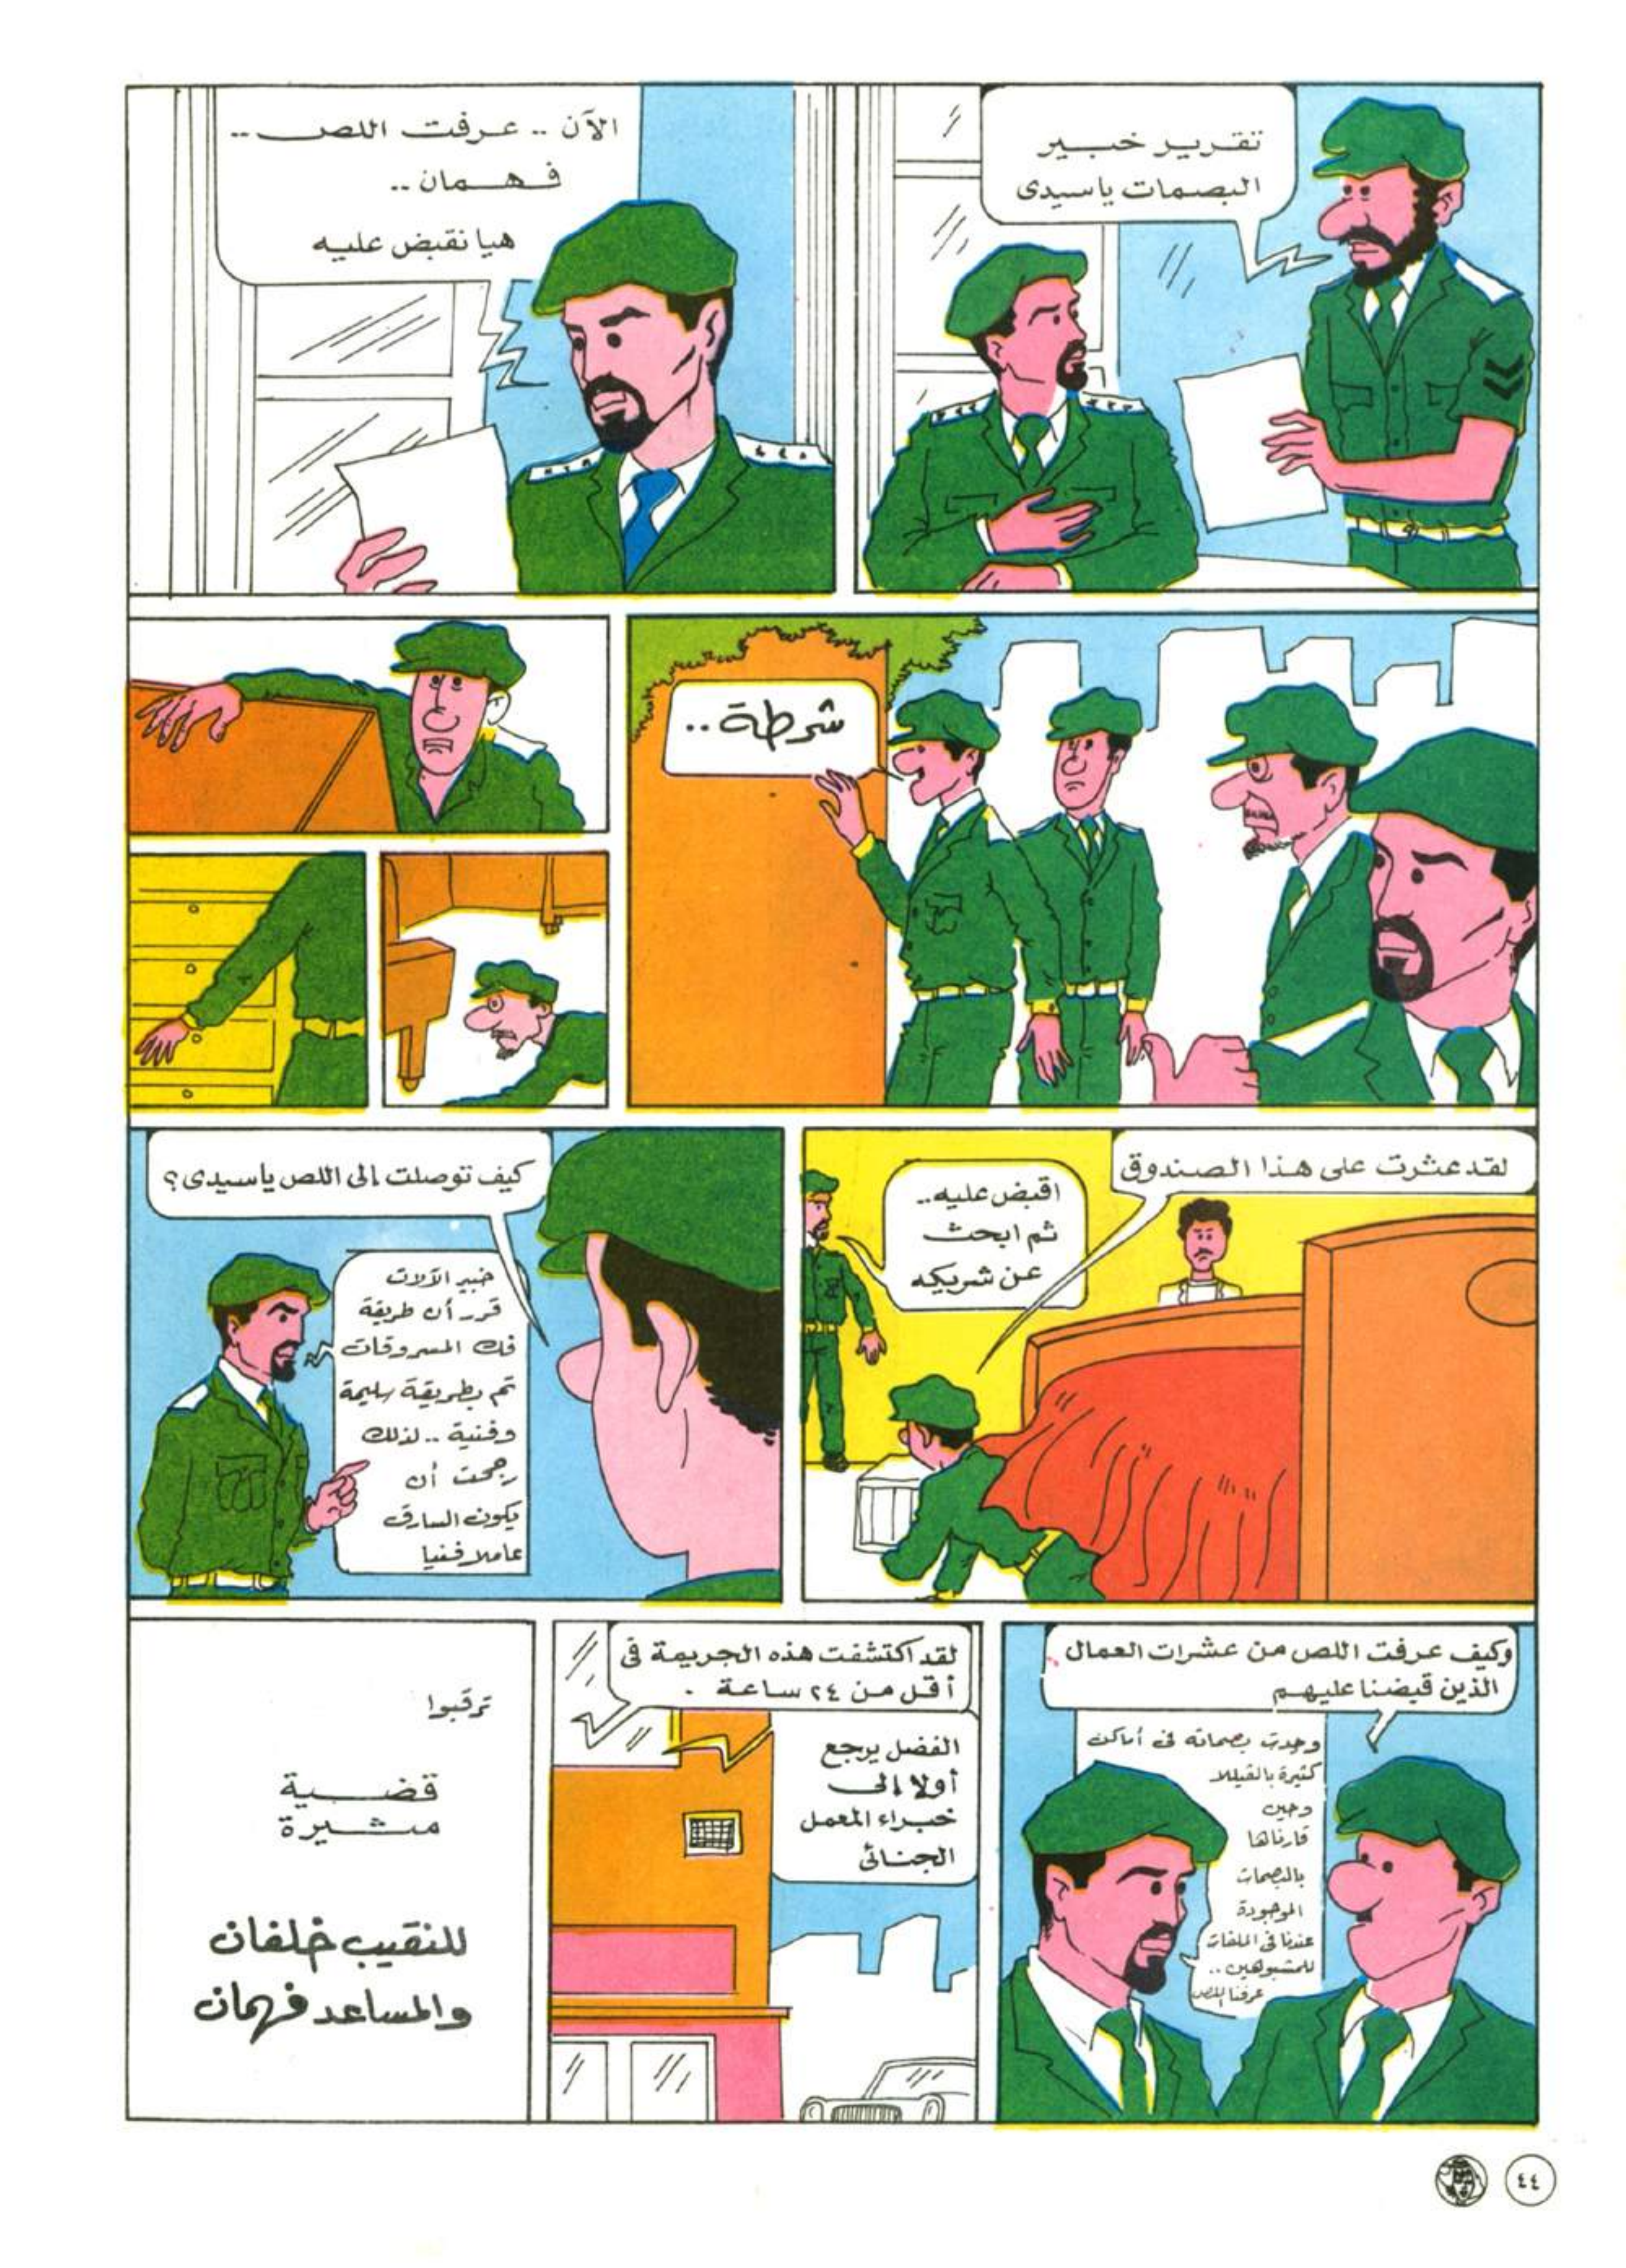 تقرير خبير
البصمات ياسيدى
الآن .. عرفت اللص ..
فهمان ..
هيا نقبض عليه
شرطة ..
لقد عثرت على هذا الصندوق
اقبض عليه ..
ثم ابحث
عن شريكه
كيف توصلت إلى اللص ياسيدى؟
خبير الآلات
قرر أن طريقة
فك المسروقات
تم بطريقة سليمة
وفنية .. لذلك
رجحت أن
يكون السارق
عاملا فنيا
وكيف عرفت اللص من عشرات العمال
الذين قبضنا عليهم
وجدت بصماته فى أماكن
كثيرة بالفيللا
وحين
قارناها
بالبصمات
الموجودة
عندنا فى الملفات
للمشبوهين ..
عرفنا اللص
لقد اكتشفت هذه الجريمة فى
أقل من ٢٤ ساعة .
الفضل يرجع
أولا إلى
خبراء المعمل
الجنائى
ترقبوا
قضية
مثيرة
للنقيب خلفان
والمساعد فهمان
٤٤